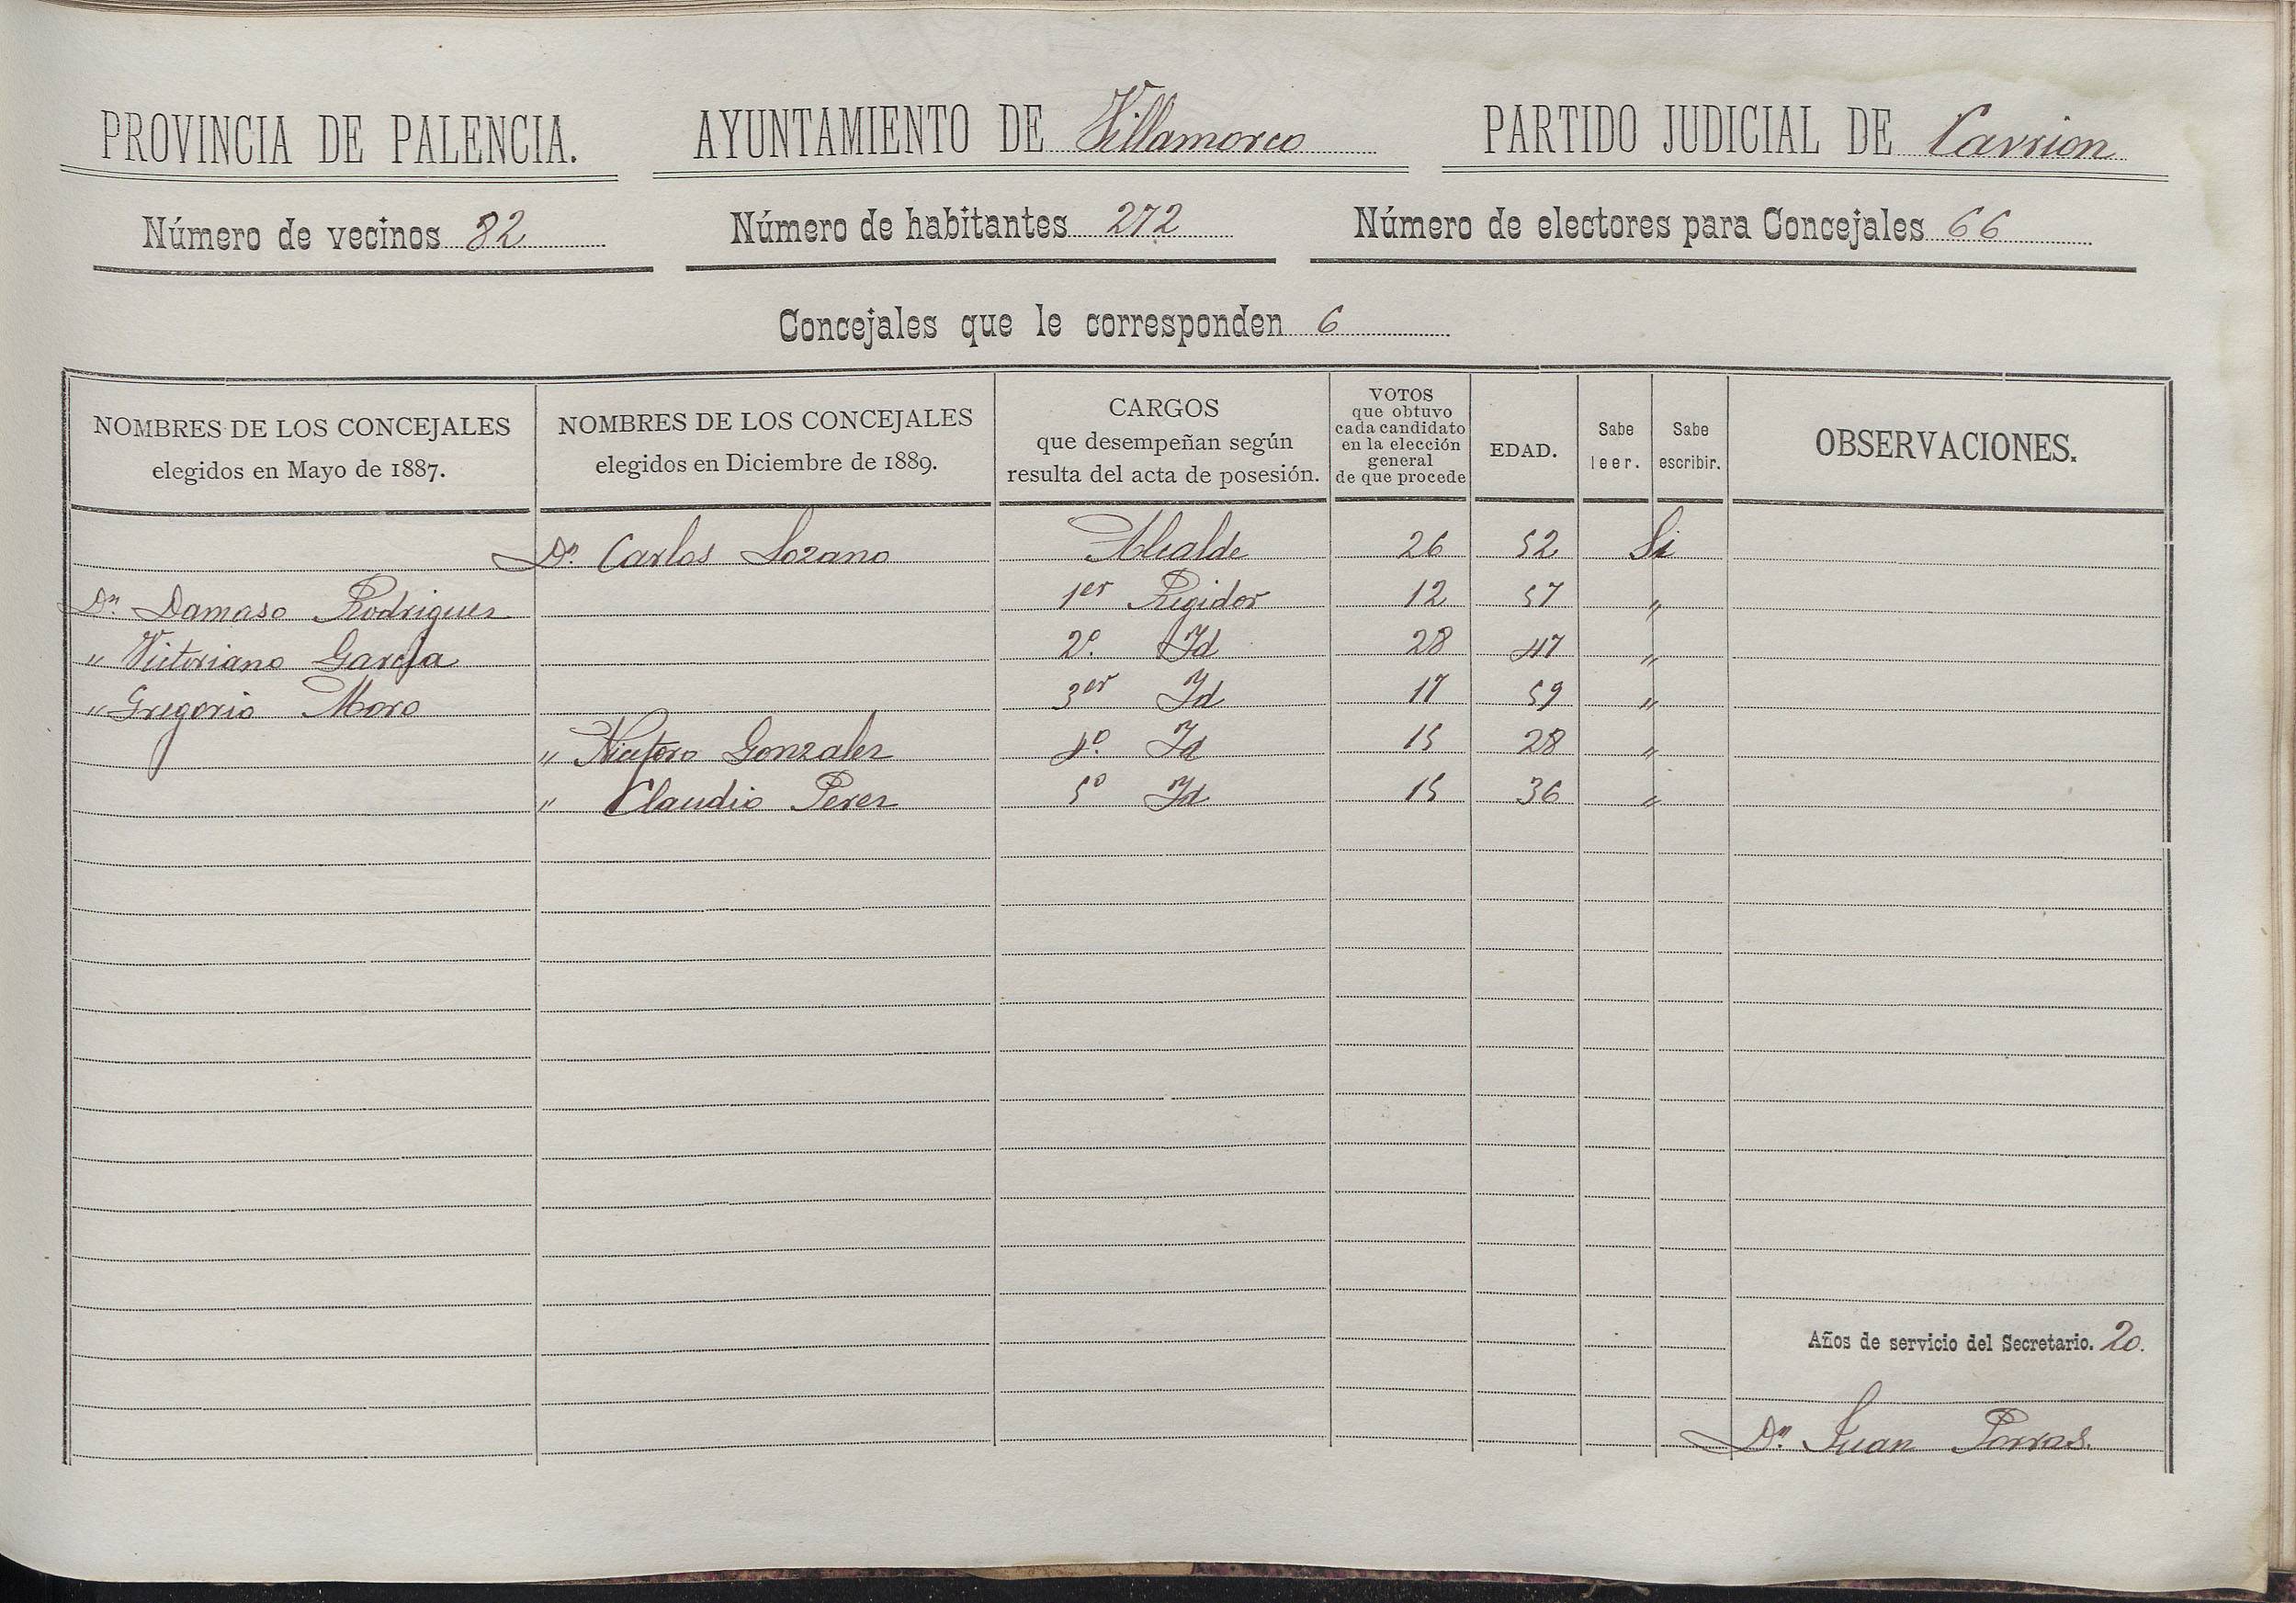 PROVINCIA DE PALENCIA. AYUNTAMIENTO DE Villamorco PARTIDO JUDICIAL DE Carrion
Número de vecinos 82 Número de habitantes 272 Número de electores para Concejales 66
Concejales que le corresponden 6
NOMBRES DE LOS CONCEJALES
elegidos en Mayo de 1887.
NOMBRES DE LOS CONCEJALES
elegidos en Diciembre de 1889.
CARGOS
que desempeñan según
resulta del acta de posesión.
VOTOS
que obtuvo
cada candidato
en la elección
general
de que procede
EDAD.
Sabe
leer.
Sabe
escribir.
OBSERVACIONES.
Dn. Carlos Lozano Alcalde 26 52 Si
Dn. Damaso Rodriguez 1er Regidor 12 57 "
" Victoriano Garcia 2º. Id 28 47 "
" Gregorio Moro 3er Id 17 59 "
" Niceforo Gonzalez 4º. Id 15 28 "
" Claudio Perez 5º Id 15 36 "
Años de servicio del Secretario. 20.
Dn. Juan Porras.